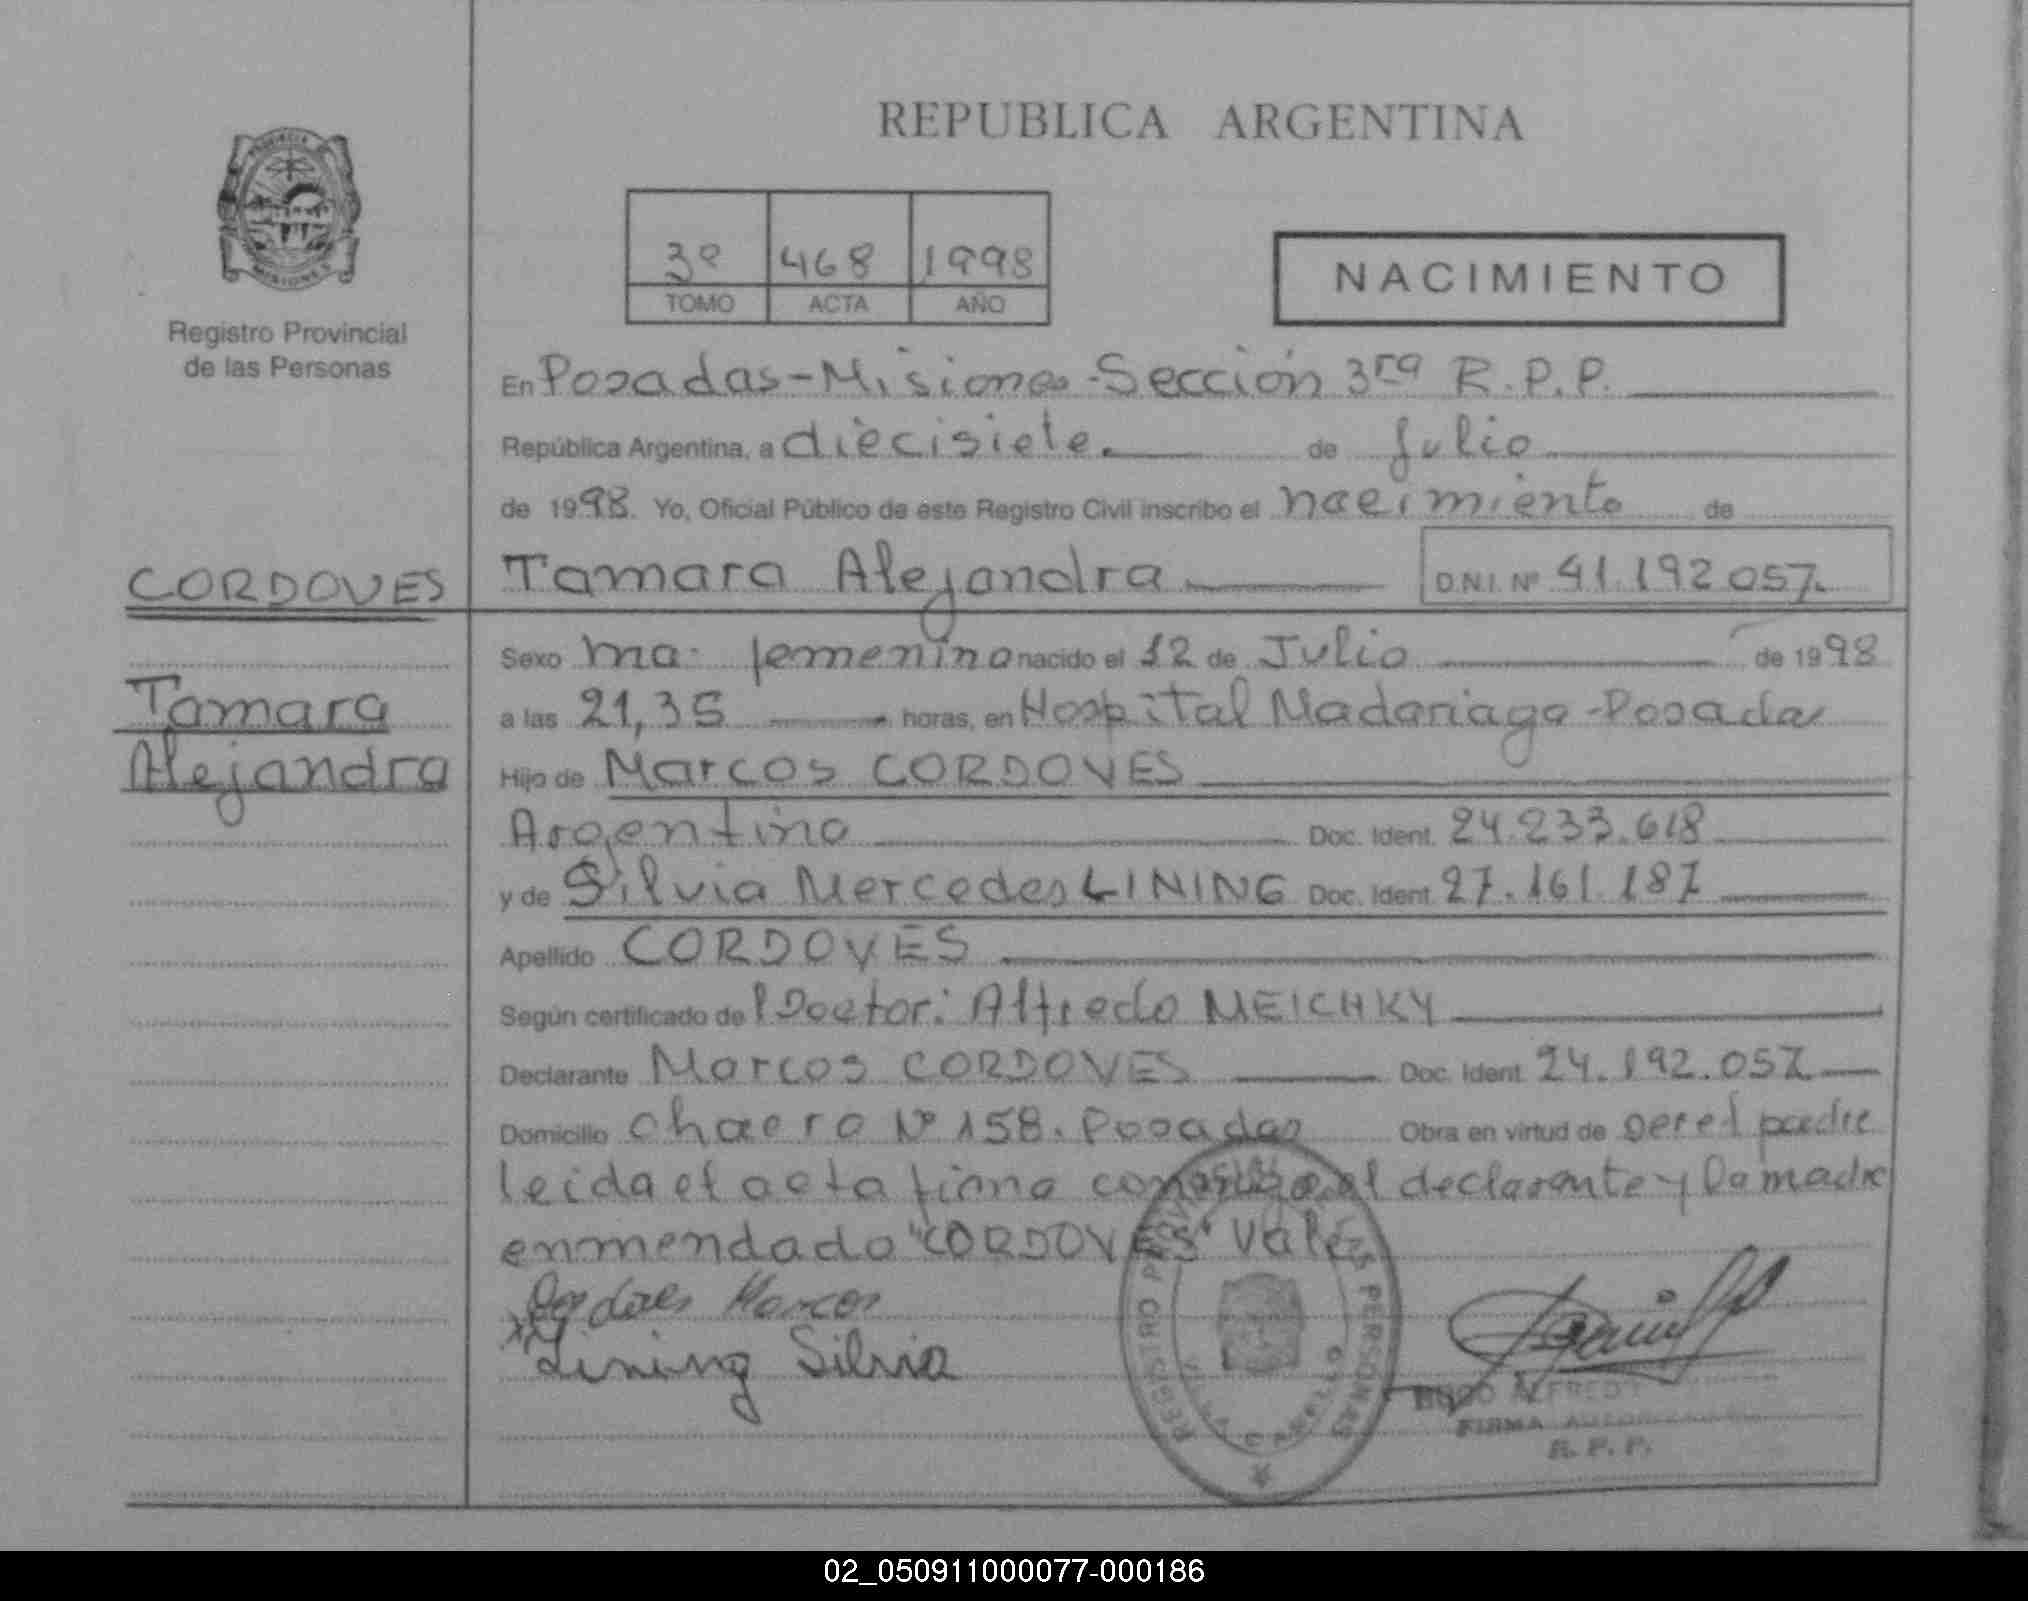 REPUBLICA ARGENTINA
PROVINCIA DE
MISIONES
Registro Provincial
de las Personas
3º 468 1998
TOMO ACTA AÑO
NACIMIENTO
En Posadas-Misiones-Sección 3ra R.P.P.
República Argentina, a diecisiete. de Julio
de 1998. Yo, Oficial Público de este Registro Civil inscribo el nacimiento de
CORDOVES
Tamara Alejandra D.N.I. Nº 41.192.057.
Tamara
Alejandra
Sexo ma. femenino nacido el 12 de Julio de 1998
a las 21,35 horas, en Hospital Madariaga-Posadas
Hijo de Marcos CORDOVES
Argentino Doc. Ident. 24.233.618
y de Silvia Mercedes LINING Doc. Ident. 27.161.187
Apellido CORDOVES
Según certificado de l Doctor: Alfredo MEICHKY
Declarante Marcos CORDOVES Doc. Ident. 24.192.057
Domicilio chacra Nº 158. Posadas Obra en virtud de ser el padre
leida el acta firma conmigo el declarante y la madre
enmendado "CORDOVES" Vale
Cordoves Marcos
x Lining Silvia
REGISTRO PROVINCIAL DE LAS PERSONAS
VILLA CABELLO
HUGO ALFREDO
FIRMA AUTORIZADA
R. P. P.
02_050911000077-000186